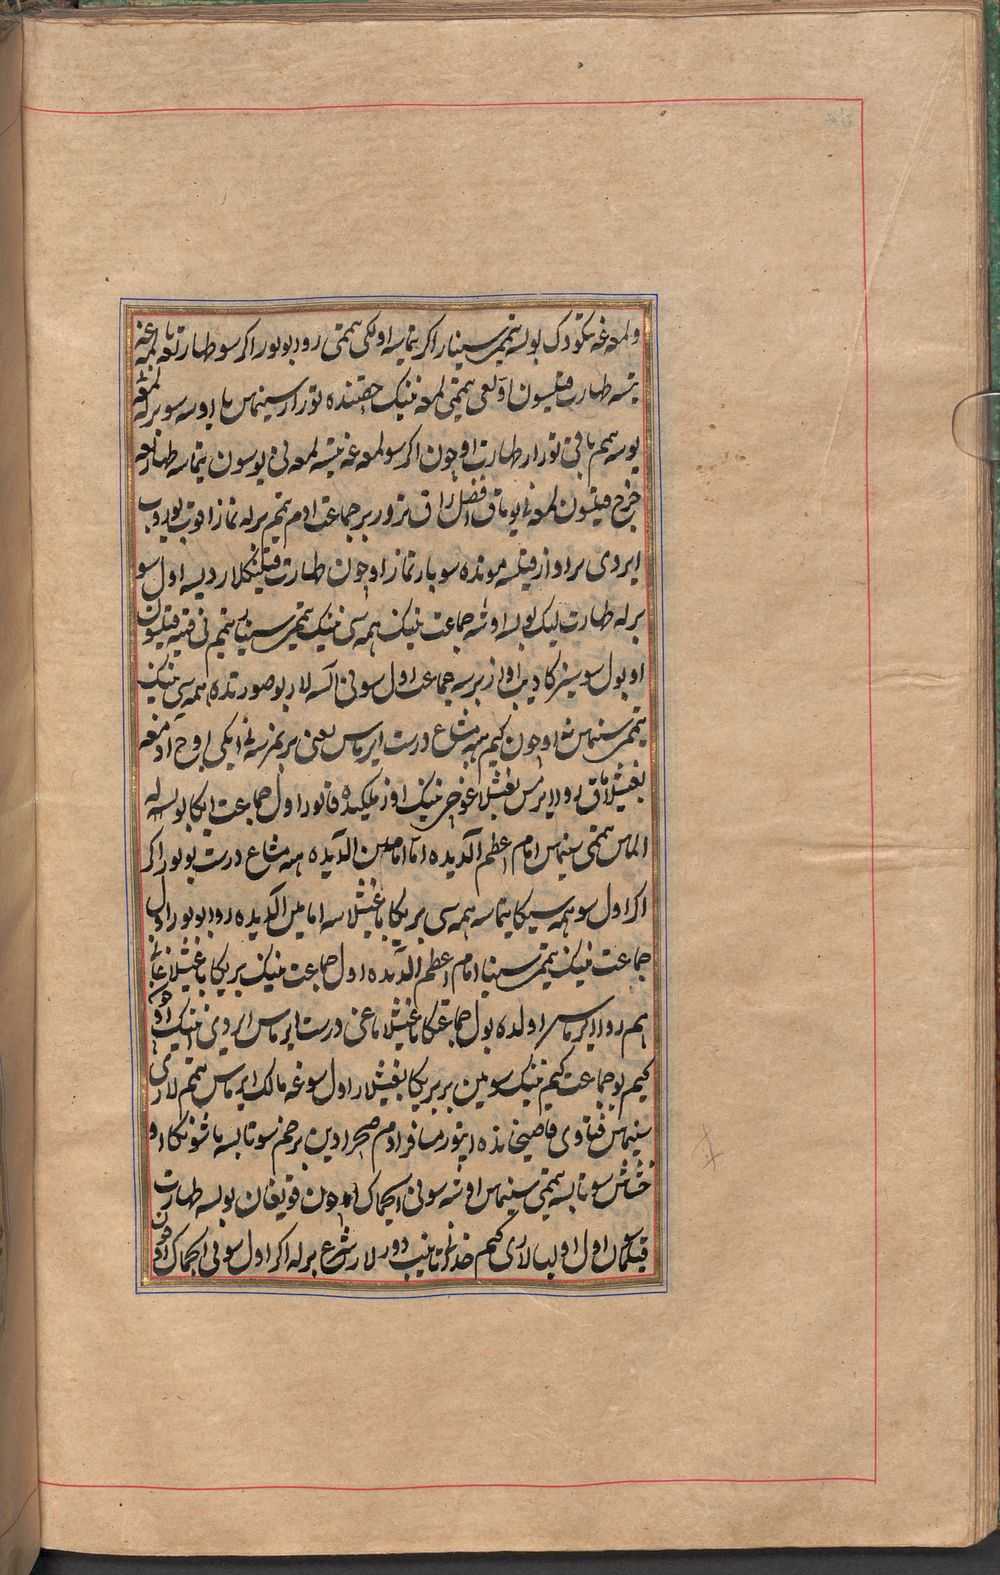 ولمعه غه یتکودک بولسه تیممی سینار اکر یتماسه اولکی تیممی روا بولور اکر سو طهارتغه یا لمعه غه
یتسه طهارت قیلسون اول کی تیممی لمعه نینک حقنده تورار سینماس یا یوسه سو برله لمعه
یوسه هم باقی تورار طهارت اوچون اکر سو لمعه غه یتسه لمعه نی یوسون یتماسه طهارتغه
خرج قیلسون لمعه نی یوماق افضل راق تورور بر جماعت ادم تیمم برله نماز اوتب یوروب
ایردی بر اواز قیلسه مونده سو بار نماز اوچون طهارت قیلینکلار دیسه اول سو
برله طهارت لیک بولسه اوشه جماعت نینک همه سی نینک تیممی سینار تیمم نی قیته قیلسون
او بول سو سیزکا دیب اواز برسه جماعت اول سونی السه لار بو صورتده همه سی نینک
تیممی سینماس نه اوچون کیم هبه مشاع درست ایرماس یعنی بر نمرسه نی ایکی اوچ ادمغه
بغیشلاماق روا ایرماس بغیشلاغوچی نینک اوز ملکیده قالور اول جماعت ایکا بولسه له
الماس تیممی سینماس امام اعظم الدیده اما امامین الدیده هبه مشاع درست بولور اکر
اکر اول سو همه سیکا یتماسه همه سی بریکا باغیشلاسه امامین الدیده روا بولور اول
جماعت نینک تیممی سینار امام اعظم الدیده اول جماعت نینک بریکا باغیشلاغانی
هم روا ایرماس اولده بول جماعتکا باغیشلاماغی درست ایرماس ایردی نینک اوچون
کیم بو جماعت کیم نینک سو مین بر بریکا بغیشلار اول سوغه مالک ایرماس تیمم لاری
سینماس فتاوی قاضیخانده ایتور مسافر ادم صحرادین بر خم سو تابسه یا شونکا او
خشاش سو تابسه تیممی سینماس اوشه سونی ایچماک اوچون قویغان بولسه طهارت
قیلماس اول اولیالاری کیم خدا یتانیب دورلار شرع برله اکر اول سونی ایچماک اوچون